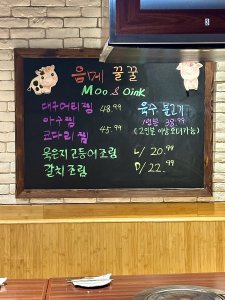 음메 꿀꿀
Moo & Oink
대구머리찜 48.99
아구찜
코다리찜 45.99
묵은지 고등어조림
갈치조림
육수 불고기
1인분 28.99
(2인분 이상 오더가능)
L/ 20.99
D/ 22.99